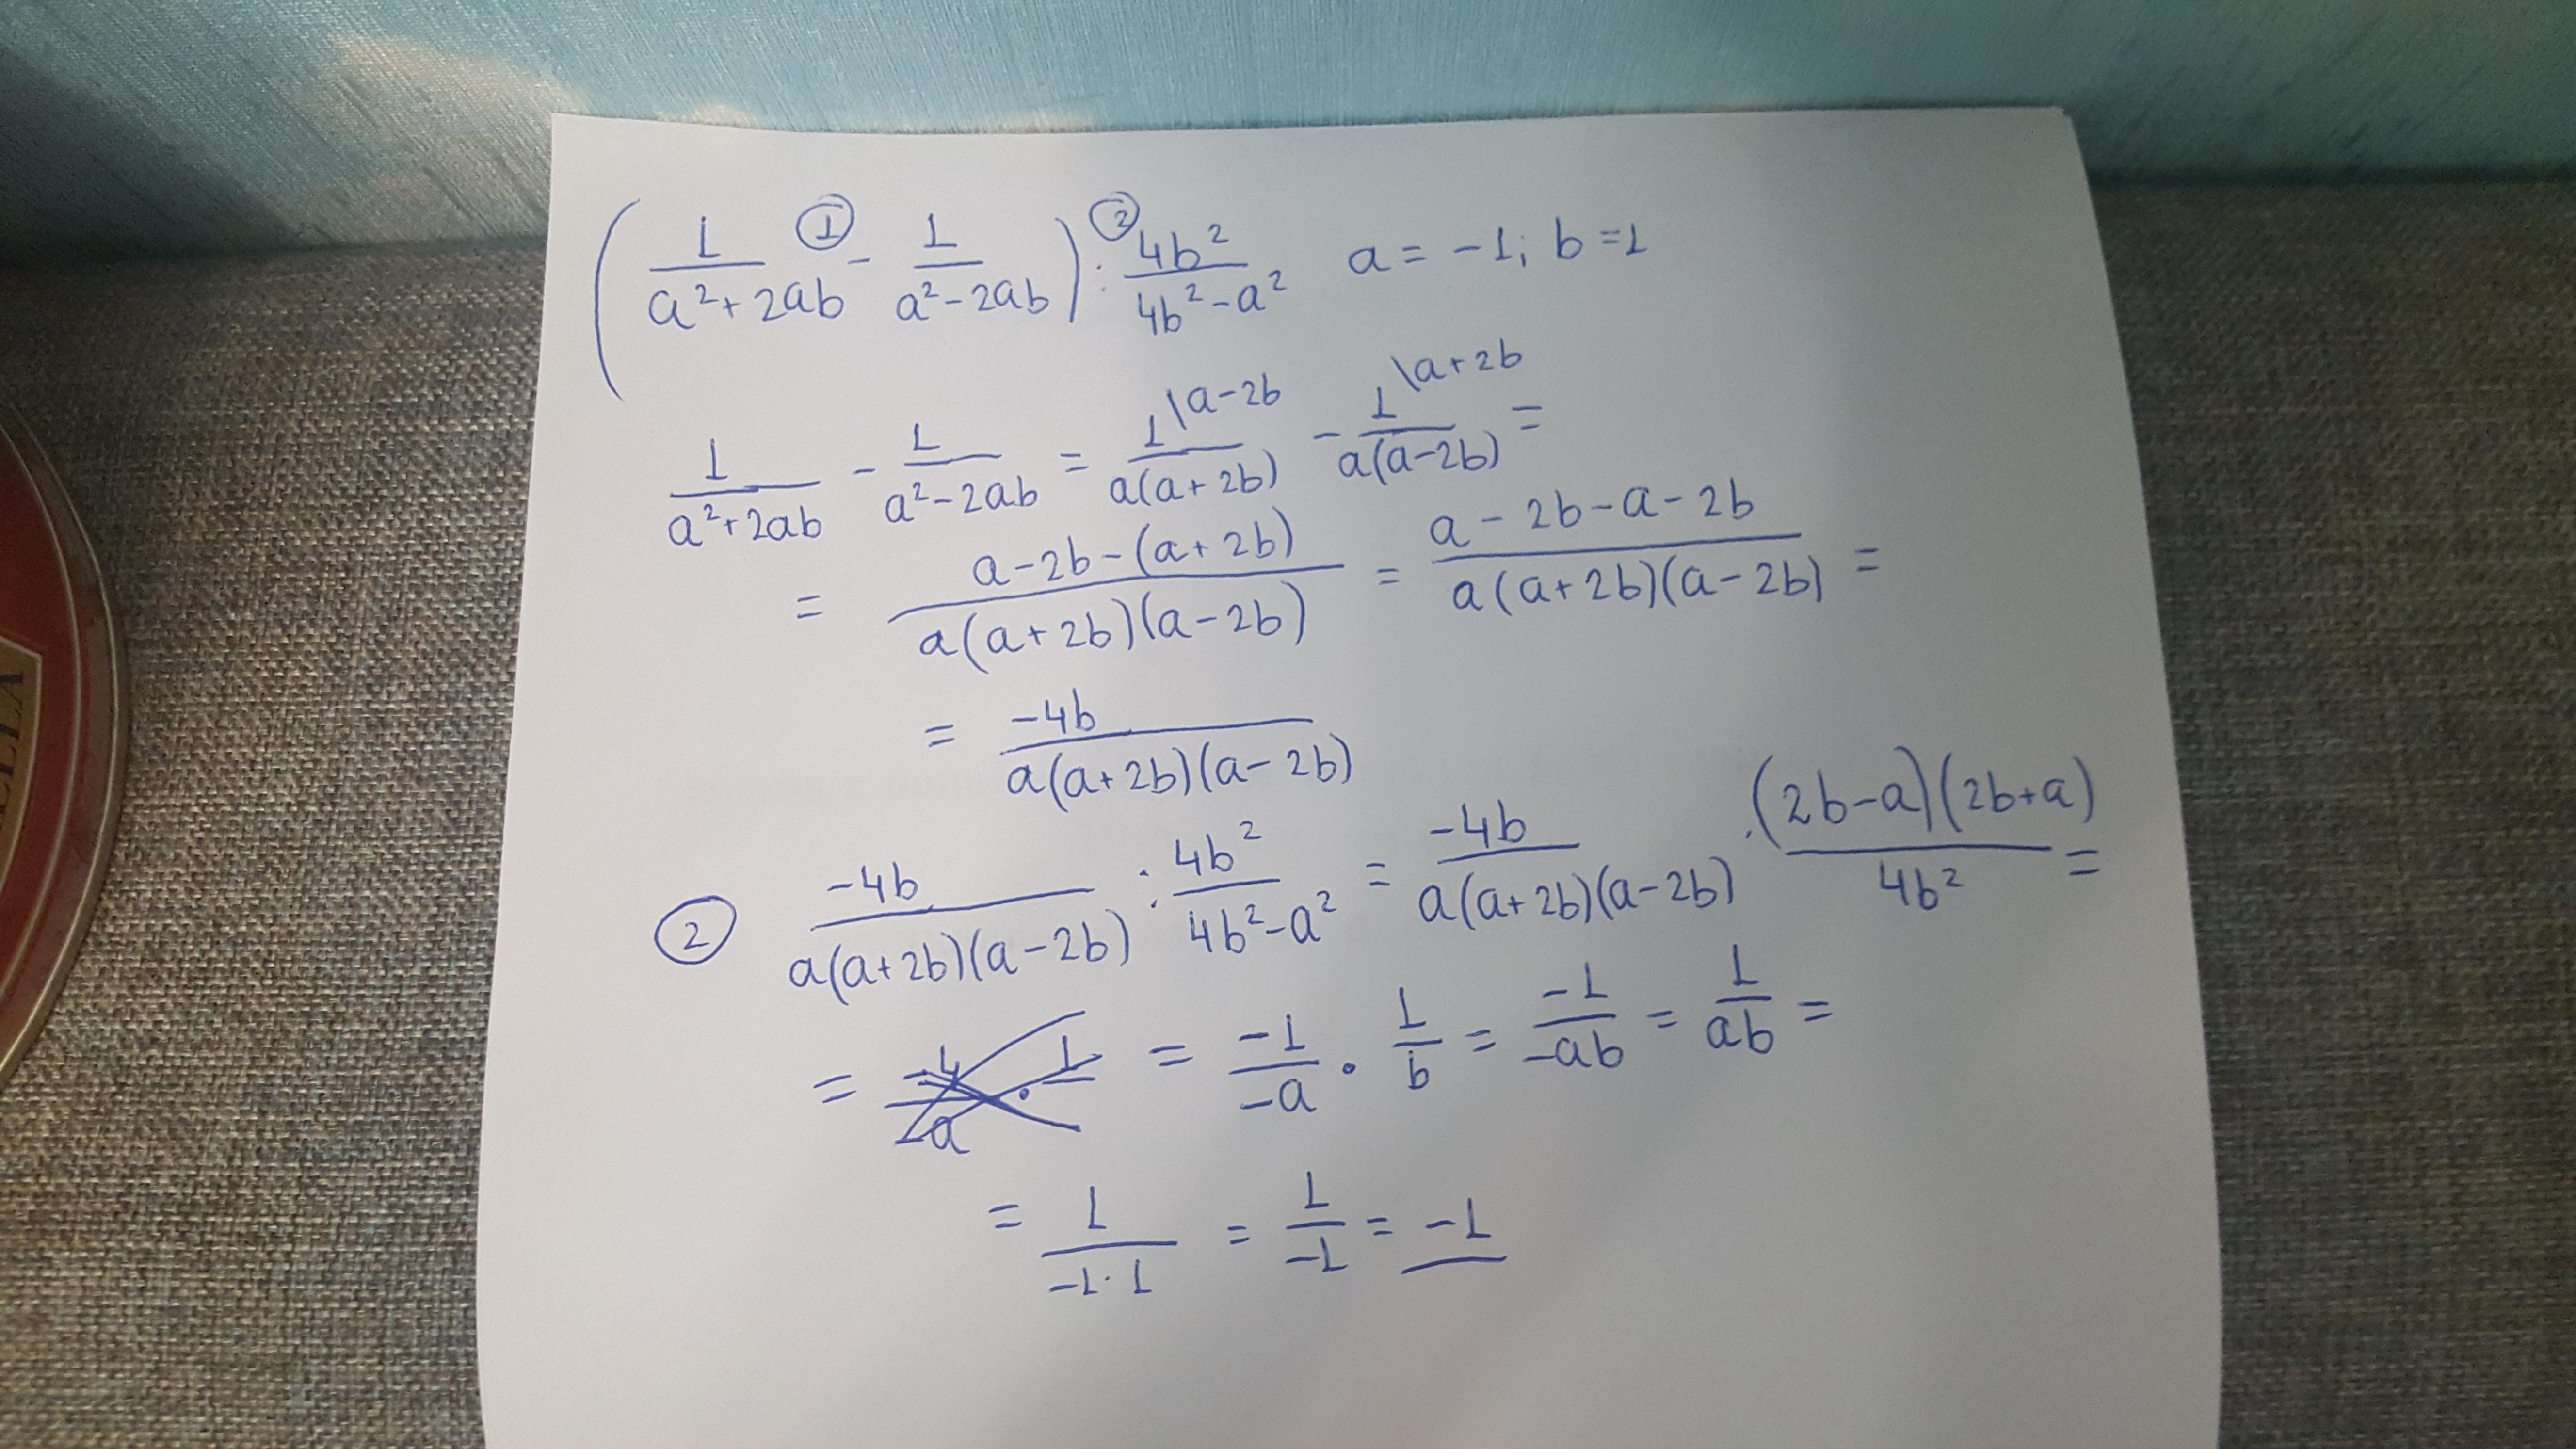 (1/(a²+2ab) ① - 1/(a²-2ab)) ② : 4b²/(4b²-a²) a = -1; b = 1
1/(a²+2ab) - 1/(a²-2ab) = 1\a-2b/(a(a+2b)) - 1\a+2b/(a(a-2b)) =
= (a-2b-(a+2b))/(a(a+2b)(a-2b)) = (a-2b-a-2b)/(a(a+2b)(a-2b)) =
= -4b/(a(a+2b)(a-2b))
② -4b/(a(a+2b)(a-2b)) : 4b²/(4b²-a²) = -4b/(a(a+2b)(a-2b)) · (2b-a)(2b+a)/4b² =
= = -1/-a · 1/b = -1/-ab = 1/ab =
= 1/(-1·1) = 1/-1 = -1